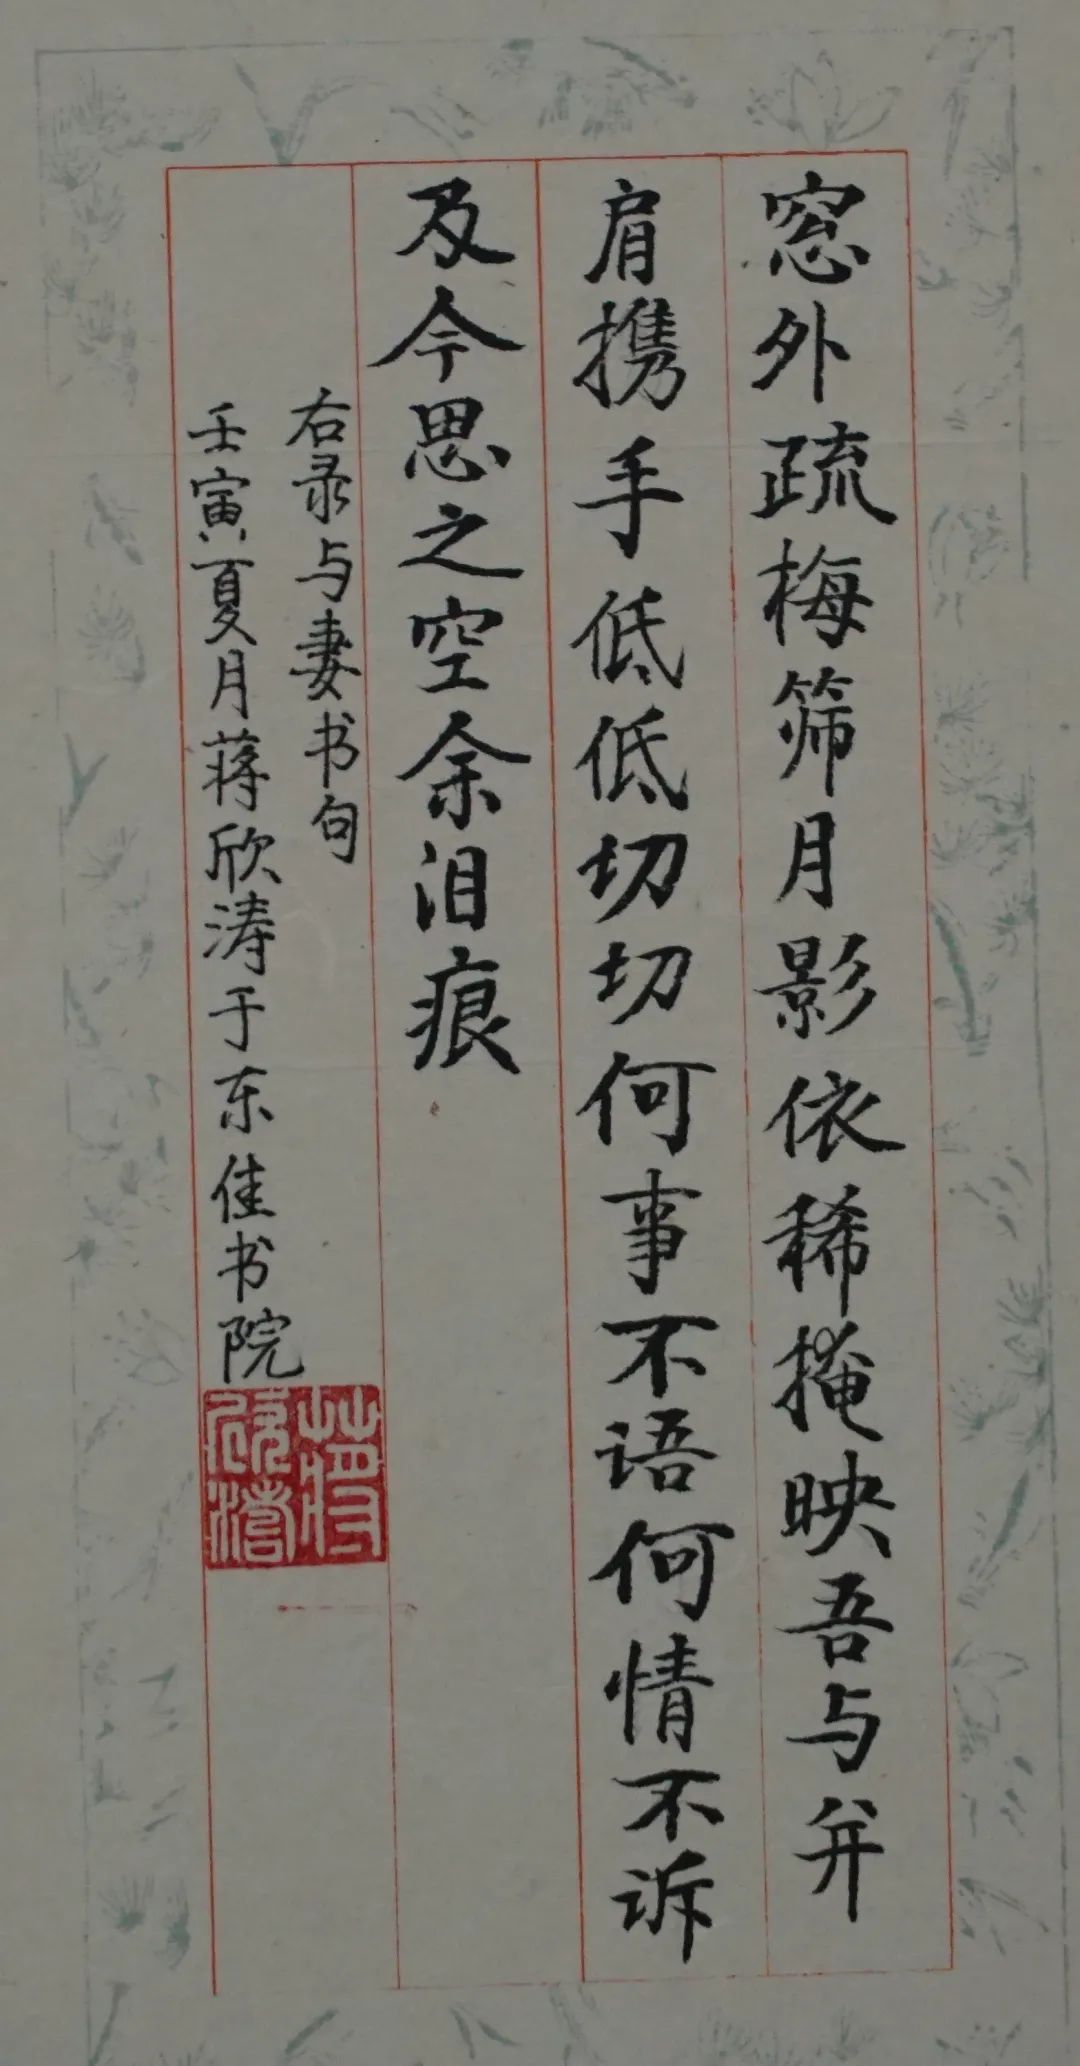 窓外疏梅筛月影依稀掩映吾与并
肩携手低低切切何事不语何情不诉
及今思之空余泪痕
右录与妻书句
壬寅夏月蒋欣涛于东佳书院
蒋欣涛